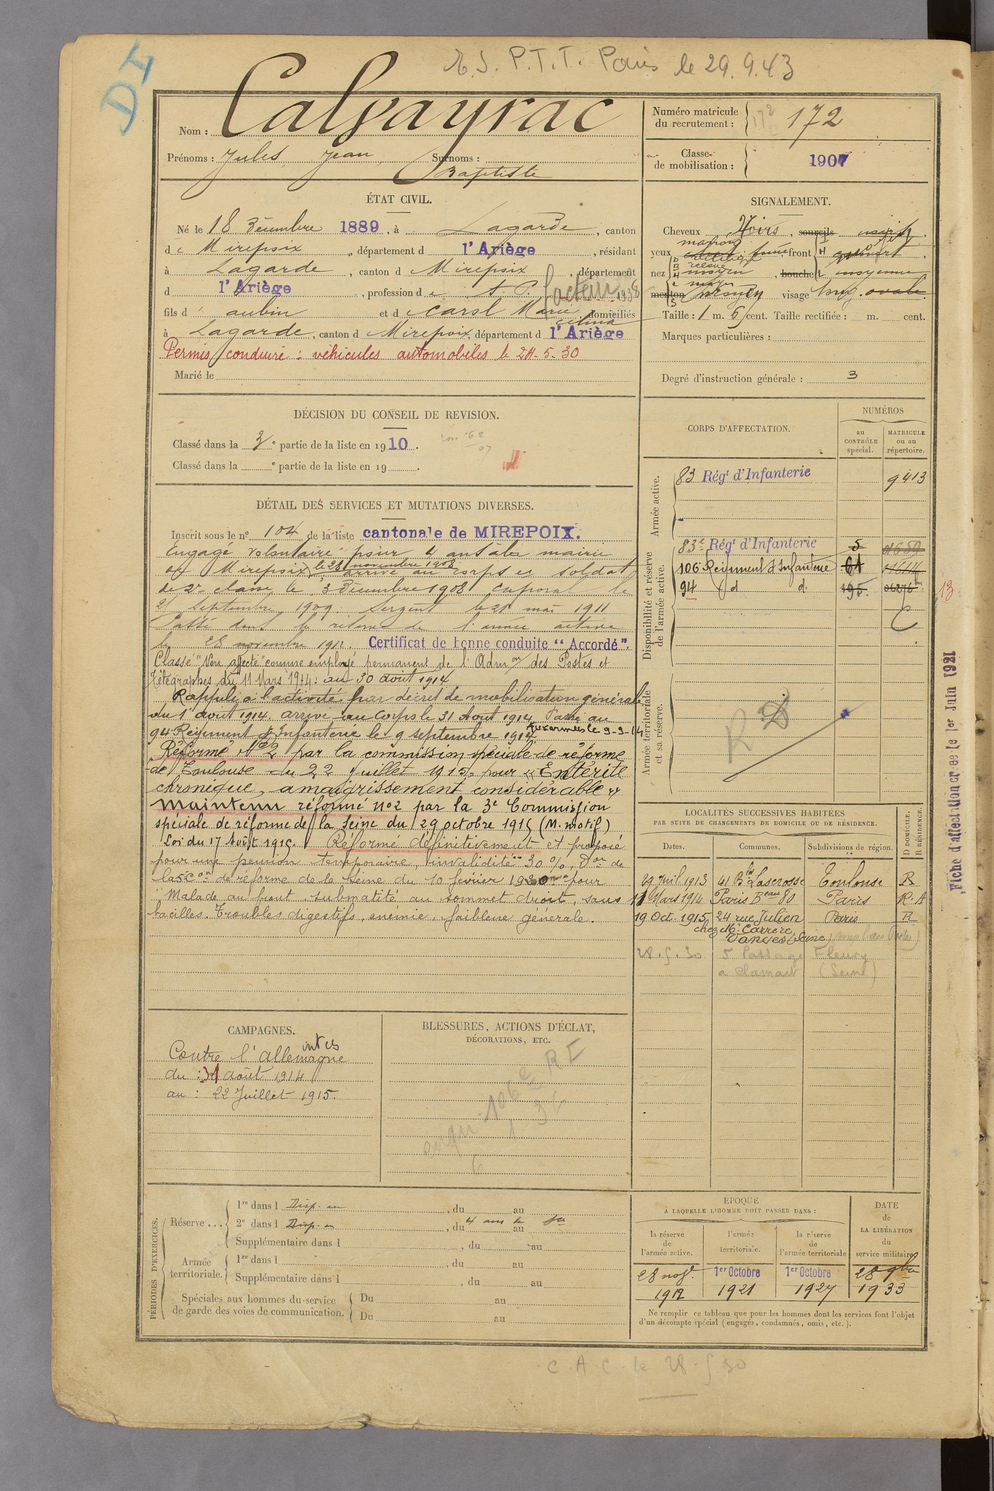 D4
P.T.T. Paris le 29.9.43
Nom : Calsayrac
Prénoms : Jules Jean Surnoms :
Baptiste
Numéro matricule du recrutement : 172
Classe de mobilisation : 1907
ÉTAT CIVIL.
Né le 18 Décembre 1889, à Lagarde, canton
de Mirepoix, département d l'Ariège, résidant
à Lagarde, canton d Mirepoix, département
d l'Ariège, profession d facteur 1938
fils d aubin et d Carsl Marie domiciliés
à Lagarde, canton d Mirepoix, département d l'Ariège
Permis conduire : véhicules automobiles le 24-5-30
Marié le
SIGNALEMENT.
Cheveux Noirs, sourcils
yeux marron front
nez moyen, bouche moyenne
menton visage ovale
Taille : 1 m. cent. Taille rectifiée : m. cent.
Marques particulières :
Degré d'instruction générale : 3
DÉCISION DU CONSEIL DE REVISION.
Classé dans la 3e partie de la liste en 1910.
Classé dans la e partie de la liste en 19
CORPS D'AFFECTATION.
NUMÉROS
au CONTRÔLE spécial.
MATRICULE ou au répertoire.
Armée active.
83 Régt d'Infanterie 9413
Disponibilité et réserve de l'armée active.
83e Régt d'Infanterie 5
106 Régiment d'Infanterie 61
94 d d 195
13
Armée territoriale et sa réserve.
DÉTAIL DES SERVICES ET MUTATIONS DIVERSES.
Inscrit sous le n° 104 de la liste cantonale de MIREPOIX.
Engagé volontaire pour 4 ans à la mairie
de Mirepoix le 28 novembre 1908 arrivé au corps et soldat
de 2e classe le 3 décembre 1908 caporal le
21 septembre 1909. Sergent le 21 mai 1911
Passé dans la réserve de l'armée active
le 28 novembre 1912. Certificat de bonne conduite "Accordé".
Classé "Non affecté" comme employé permanent de l'Admon des Postes et
Télégraphes du 11 Mars 1914 : au 30 août 1914
Rappelé à l'activité par décret de mobilisation générale
du 1 août 1914. arrivé au corps le 31 Août 1914. Passé au
94 Régiment d'Infanterie le 9 septembre 1914
Réformé N°2 par la commission spéciale de réforme
de Toulouse du 22 juillet 1915, pour "Entérite
chronique, amaigrissement considérable"
Maintenu réformé n°2 par la 3e Commission
spéciale de réforme de la Seine du 29 octobre 1915 (M. motif)
Loi du 17 Août 1915. Réformé définitivement et proposé
pour une pension temporaire, invalidité 30 %, Don de
la 5e Con de réforme de la Seine du 10 février 1920 pour
"Malade au front, submatité au sommet droit, sans
bacilles. Troubles digestifs, anémie, faiblesse générale.
LOCALITÉS SUCCESSIVES HABITÉES
PAR SUITE DE CHANGEMENTS DE DOMICILE OU DE RÉSIDENCE.
Dates. Communes. Subdivisions de région. D DOMICILE. R RÉSIDENCE.
29 Juil. 1913 41 Bd Lascrosse Toulouse R
11 Mars 1914 Paris Paris R.A
19 Oct. 1915 24 rue Julien Paris R
chez Mr Carrère
Vanves (Seine)
28.5.30 5 Passage Fleury
à Clamart (Seine)
Fiche d'affectation créée le 1er Juin 1921
CAMPAGNES.
Contre l'Allemagne
du : 31 août 1914
au : 22 Juillet 1915.
BLESSURES, ACTIONS D'ÉCLAT, DÉCORATIONS, ETC.
PÉRIODES D'EXERCICES.
Réserve... 1re dans l Disp. , du au
2e dans l Disp. , du au
Supplémentaire dans l , du au
Armée territoriale. 1re dans l , du au
Supplémentaire dans l , du au
Spéciales aux hommes du service de garde des voies de communication. Du au
Du au
ÉPOQUE
À LAQUELLE L'HOMME DOIT PASSER DANS :
la réserve de l'armée active.
l'armée territoriale.
la réserve de l'armée territoriale
DATE de LA LIBÉRATION du service militaire
28 nov. 1912
1er Octobre 1921
1er Octobre 1927
28 9bre 1933
Ne remplir ce tableau que pour les hommes dont les services font l'objet
d'un décompte spécial (engagés, condamnés, omis, etc.).
C.A.C. le 28.5.30